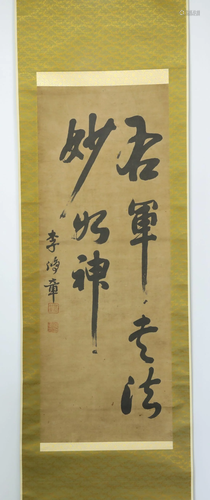 右軍書法
妙如神
李鴻章